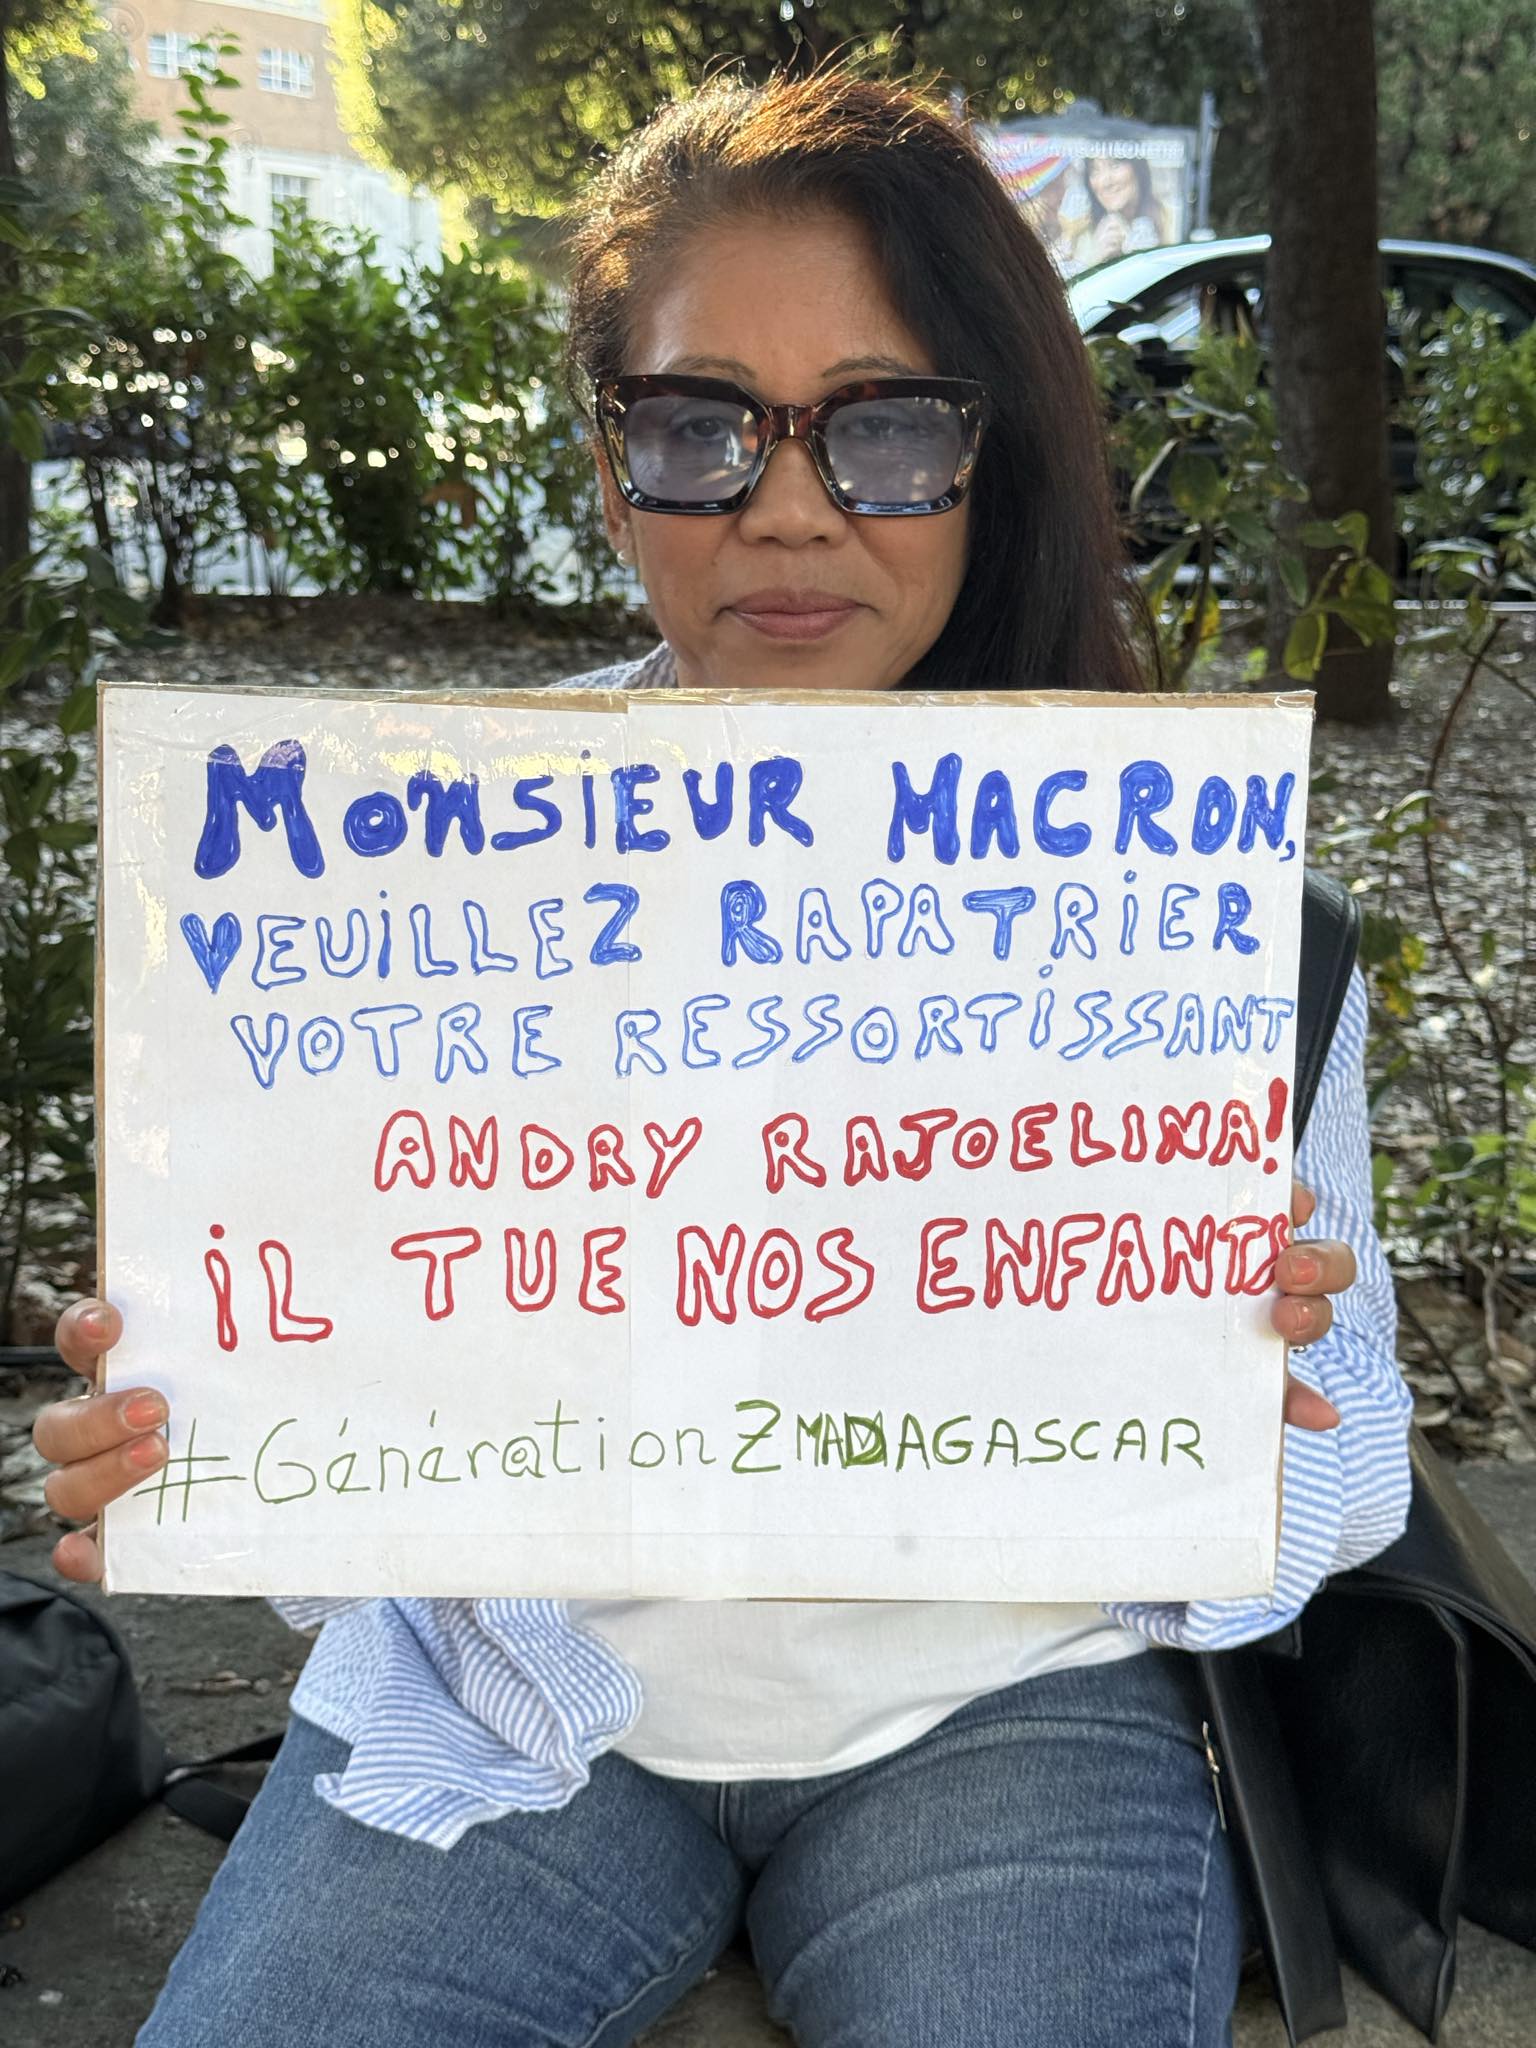 MONSIEUR MACRON,
VEUILLEZ RAPATRIER
VOTRE RESSORTISSANT
ANDRY RAJOELINA!
iL TUE NOS ENFANTS
#Génér@tionZMADAGASCAR